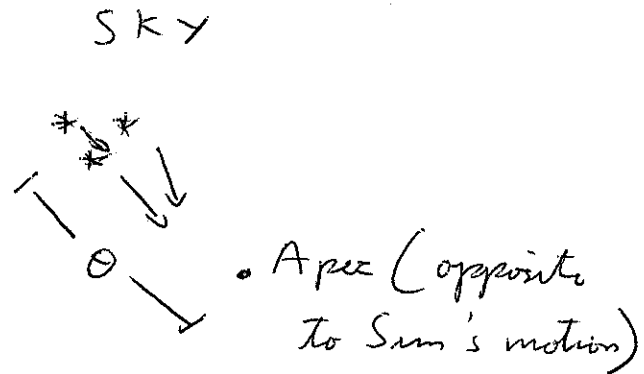 SKY
θ
. Apex (opposite
to Sun's motion)